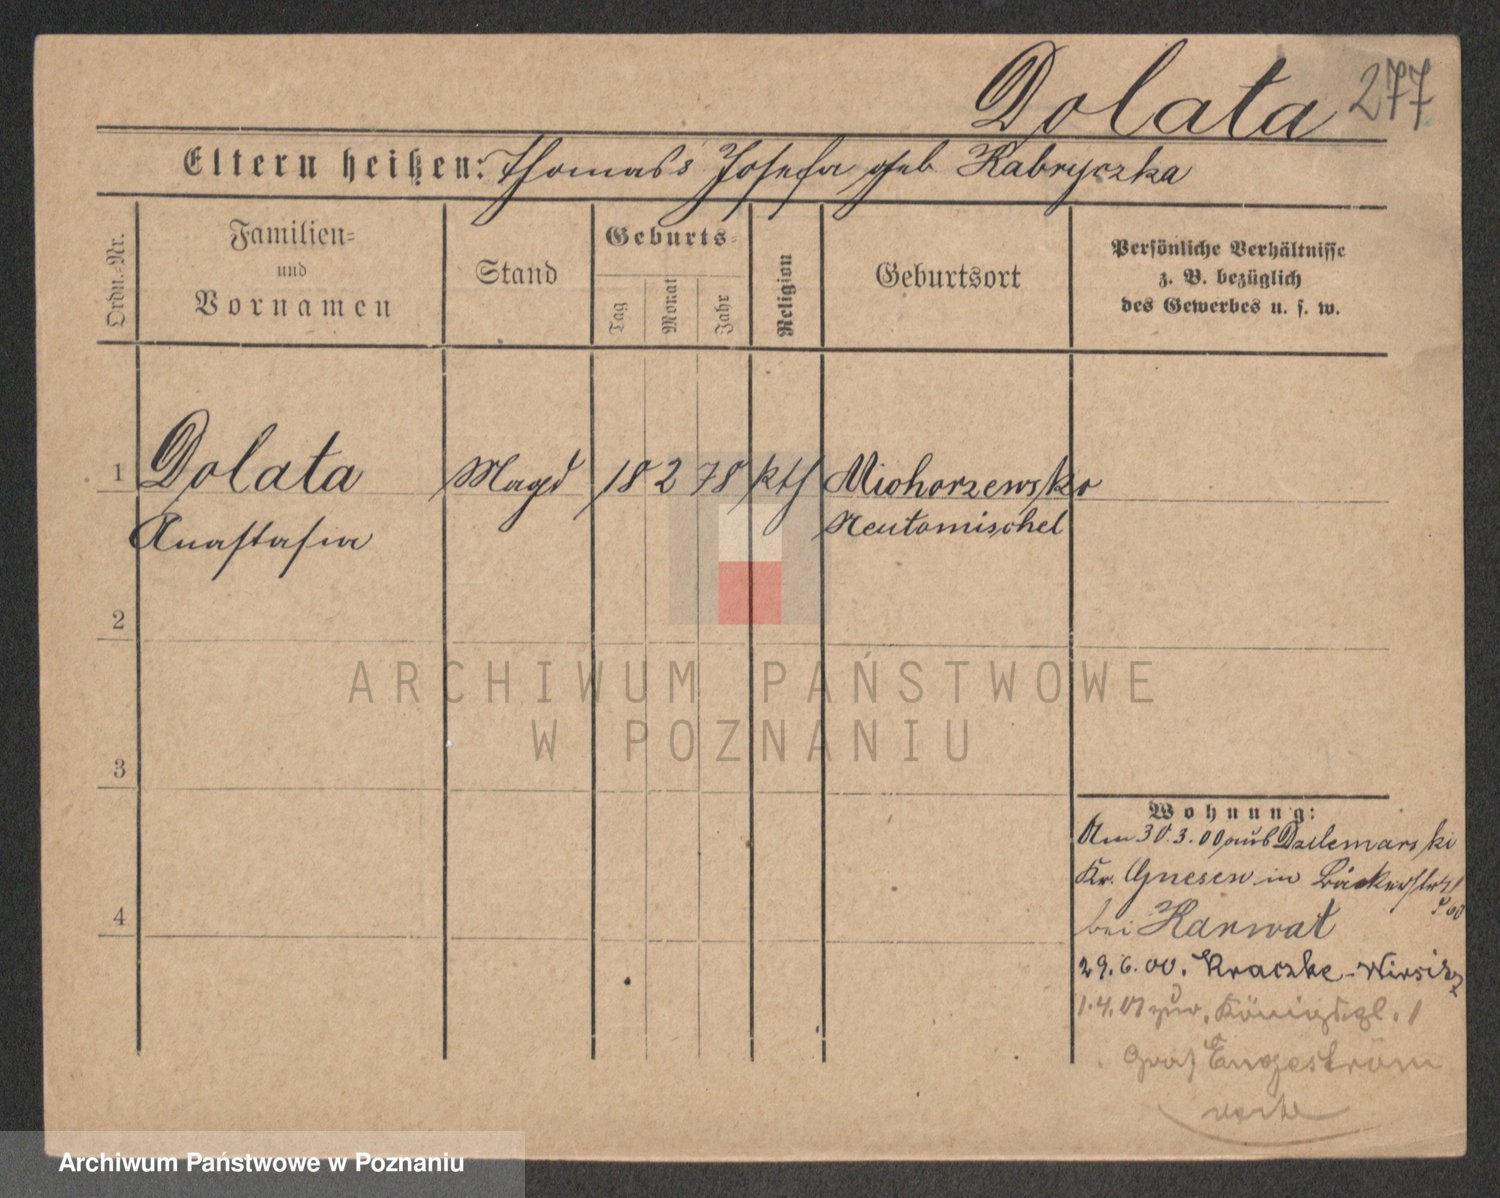 Dolata 277
Eltern heißen: Thomas s Josefa geb Kabryczka
Ordn.=Nr.
Familien=
und
Vornamen
Stand
Geburts=
Tag
Monat
Jahr
Religion
Geburtsort
Persönliche Verhältnisse
z. B. bezüglich
des Gewerbes u. s. w.
1 Dolata Magd 18 2 78 kth Michorzewsko
Anastasia Neutomischel
2
3
4
Wohnung:
Am 30.3.00 aus Dzilemarski
Kr. Gnesen in Bäckerstr 21
bei Karwat
29.6.00. Kraczke - Wirsitz
1.4.01 zur. Königspl. 1
Graf Engeström
ARCHIWUM PAŃSTWOWE
W POZNANIU
Archiwum Państwowe w Poznaniu